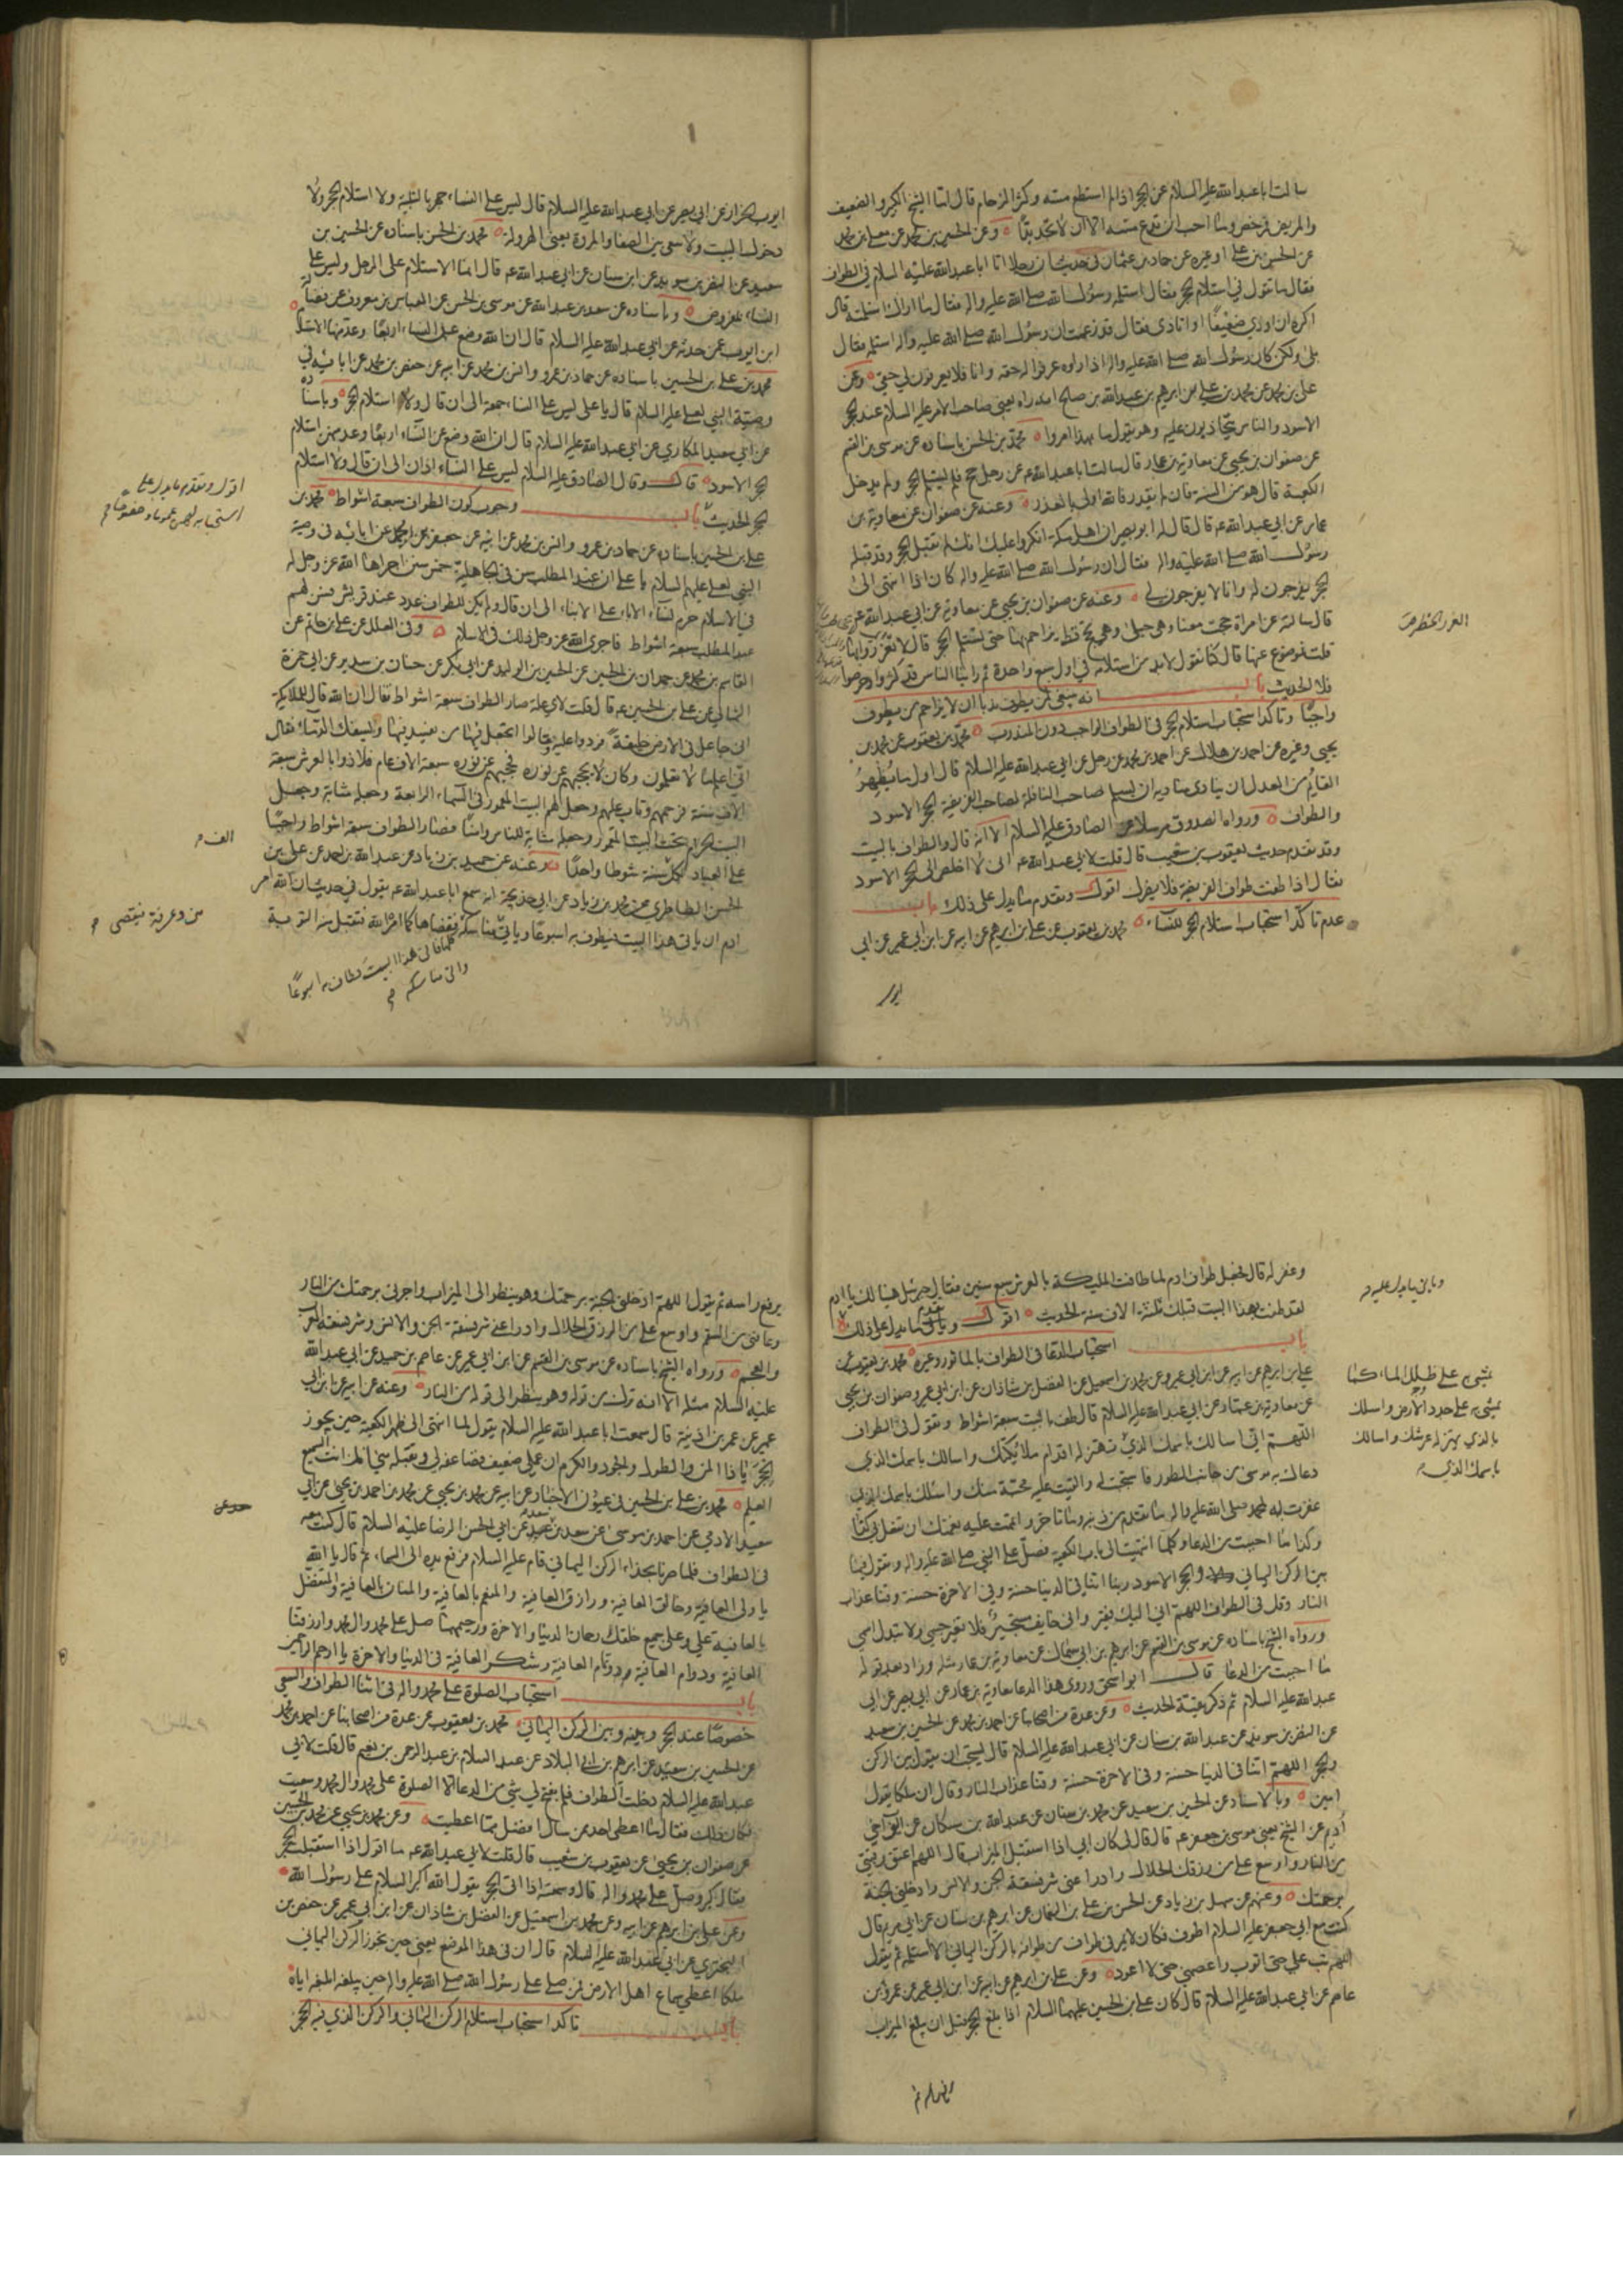 سالت ابا عبد الله عليه السلام عن الحجر اذا لم استطع مسه وكثر الزحام قال اما الشيخ الكبير والضعيف
والمريض فمرخص وما احب ان تدع مسه الا ان لا تجد بدا وعن الحسين بن محمد عن معلى بن محمد
عن الحسن بن علي او غيره عن حماد بن عثمان في حديث ان رجلا اتا ابا عبد الله عليه السلام في الطواف
فقال ما تقول في استلام الحجر فقال استلمه رسول الله صلى الله عليه واله فقال ما اراك استلمته قال
اكره ان اوذي ضعيفا او اتاذى فقال قد زعمت ان رسول الله صلى الله عليه واله استلمه فقال
بلى ولكن كان رسول الله صلى الله عليه واله اذا راوه عرفوا له حقه وانا فلا يعرفون لي حقي وعن
علي بن محمد عن محمد بن علي بن ابراهيم عن عبد الله بن صالح انه راه يعني صاحب الامر عليه السلام عند الحجر
الاسود والناس يتجاذبون عليه وهو يقول ما بهذا امروا محمد بن الحسن باسناده عن موسى بن القسم
عن صفوان بن يحيى عن معاوية بن عمار قال سالت ابا عبد الله عم عن رجل حج فلم يستلم الحجر ولم يدخل
الكعبة قال هو من السنة فان لم يقدر فالله اولى بالعذر وعنه عن صفوان عن معاوية بن
عمار عن ابي عبد الله عم قال قال له ابو بصير ان اهل مكة انكروا عليك انك لم تقبل الحجر وقد قبله
رسول الله صلى الله عليه واله فقال ان رسول الله صلى الله عليه واله كان اذا انتهى الى
الحجر يفرجون له وانا لا يفرجون لي وعنه عن صفوان بن يحيى عن معاوية عن ابي عبد الله
قال سالته عن امراة حجت معنا وهي حبلى ولم تحج قط يزاحم بها حتى تستلم الحجر قال لا تغرروا بها
قلت فموضوع عنها قال كنا نقول لا بد من استلامه في اول سبع واحدة ثم راينا الناس قد كثروا وحرصوا
فلا الحديث باب انه ينبغي لمن يطوف ندبا ان لا يزاحم من يطوف
واجبا وتاكد استحباب استلام الحجر في الطواف الواجب دون المندوب محمد بن يعقوب عن محمد بن
يحيى وغيره عن احمد بن هلال عن احمد بن محمد عن رجل عن ابي عبد الله عليه السلام قال اول ما يظهر
القايم من العدل ان ينادي مناديه ان يسلم صاحب النافلة لصاحب الفريضة الحجر الاسود
والطواف ورواه الصدوق مرسلا عن الصادق عليه السلام الا انه قال والطواف بالبيت
وقد تقدم حديث يعقوب بن شعيب قال قلت لابي عبد الله عم اني لا اخلص الى الحجر الاسود
فقال اذا طفت طواف الفريضة فلا يضرك اقول وتقدم ما يدل على ذلك باب
عدم تاكد استحباب استلام الحجر للنساء محمد بن يعقوب عن علي بن ابراهيم عن ابيه عن ابن ابي عمير عن ابي
ايوب
ايوب الخزاز عن ابي بصير عن ابي عبد الله عليه السلام قال ليس على النساء جهر بالتلبية ولا استلام الحجر ولا
دخول البيت ولا سعي بين الصفا والمروة يعني الهرولة محمد بن الحسن باسناده عن الحسين بن
سعيد عن النضر بن سويد عن ابن سنان عن ابي عبد الله عم قال انما الاستلام على الرجل وليس على
النساء بمفروض وباسناده عن سعد بن عبد الله عن موسى بن الحسن عن العباس بن معروف عن فضالة
ابن ايوب عمن حدثه عن ابي عبد الله عليه السلام قال ان الله وضع على النساء اربعا وعد منها الاستلام
محمد بن علي بن الحسين باسناده عن حماد بن عمرو وانس بن محمد عن ابيه عن جعفر بن محمد عن ابائه في
وصية النبي لعلي عليه السلام قال يا علي ليس على النساء جمعة الى ان قال ولا استلام الحجر وباسناده
عن ابي سعيد المكاري عن ابي عبد الله عليه السلام قال ان الله وضع عن النساء اربعا وعد منهن استلام
الحجر الاسود قال وقال الصادق عليه السلام ليس على النساء اذان الى ان قال ولا استلام
الحجر الحديث باب وجوب كون الطواف سبعة اشواط محمد بن
علي بن الحسين باسناده عن حماد بن عمرو وانس بن محمد عن ابيه عن جعفر بن محمد عن ابائه في وصية
النبي لعلي عليهم السلام يا علي ان عبد المطلب سن في الجاهلية خمس سنن اجراها الله عز وجل له
في الاسلام حرم نساء الاباء على الابناء الى ان قال ولم يكن للطواف عدد عند قريش فسن لهم
عبد المطلب سبعة اشواط فاجرى الله عز وجل ذلك في الاسلام وفي العلل عن علي بن حاتم عن
القاسم بن محمد عن حمدان بن الحسين عن الحسين بن الوليد عن ابي بكر عن حنان بن سدير عن ابي حمزة
الثمالي عن علي بن الحسين عم قال قلت لاي علة صار الطواف سبعة اشواط فقال ان الله قال للملايكة
اني جاعل في الارض خليفة فردوا عليه وقالوا اتجعل فيها من يفسد فيها ويسفك الدماء فقال
اني اعلم ما لا تعلمون وكان لا يحجبهم عن نوره فحجبهم عن نوره سبعة الاف عام فلاذوا بالعرش سبعة
الاف سنة فرحمهم وتاب عليهم وجعل لهم البيت المعمور في السماء الرابعة وجعله مثابة وجعل
البيت الحرام تحت البيت المعمور وجعله مثابة للناس وامنا فصار الطواف سبعة اشواط واجبا
على العباد لكل سنة شوطا واحدا وعنه عن حميد بن زياد عن عبد الله بن احمد عن علي بن
الحسن الطاطري عن محمد بن زياد عن ابي خديجة انه سمع ابا عبد الله عم يقول في حديث ان الله امر
ادم ان ياتي هذا البيت فيطوف به اسبوعا وياتي منا فيقضي مناسكه كلها كما امر الله فتقبل منه التوبة
فاتى هذا البيت وطاف به اسبوعا
واتى مناسكه
اقول وتقدم ما يدل على
استحبابه لهن عموما وخصوصا
الف
من وعرفة فيقضي
وغفر له قال فجعل طواف ادم لما طافت المليكة بالعرش سبع سنين فقال جبرئيل هنيئا لك يا ادم
لقد طفت بهذا البيت قبلك ثلثة الاف سنة الحديث اقول وياتي ما يدل على ذلك
باب استحباب الدعاء في الطواف بالماثور وغيره محمد بن يعقوب عن
علي بن ابراهيم عن ابيه عن ابن ابي عمير وعن محمد بن اسمعيل عن الفضل بن شاذان عن ابن ابي عمير وصفوان بن يحيى
عن معاوية بن عمار عن ابي عبد الله عليه السلام قال طف بالبيت سبعة اشواط وتقول في الطواف
اللهم اني اسالك باسمك الذي تهتز له اقدام ملائكتك واسالك باسمك الذي
دعاك به موسى من جانب الطور فاستجبت له والقيت عليه محبة منك واسئلك باسمك الذي
غفرت به لمحمد صلى الله عليه واله ما تقدم من ذنبه وما تاخر واتممت عليه نعمتك ان تفعل بي كذا
وكذا ما احببت من الدعا وكلما انتهيت الى باب الكعبة فصل على النبي صلى الله عليه واله وتقول فيما
بين الركن اليماني والحجر الاسود ربنا اتنا في الدنيا حسنة وفي الاخرة حسنة وقنا عذاب
النار وقل في الطواف اللهم اني اليك فقير واني خايف مستجير فلا تغير جسمي ولا تبدل اسمي
ورواه الشيخ باسناده عن موسى بن القسم عن ابراهيم بن ابي سماك عن معاوية بن عمار مثله وزاد بعد قوله
ما احببت من الدعا قال ابو اسحق وروى هذا الدعا معاوية بن عمار عن ابي بصير عن ابي
عبد الله عليه السلام ثم ذكر بقية الحديث وعن عدة من اصحابنا عن احمد بن محمد عن الحسين بن سعيد
عن النضر بن سويد عن عبد الله بن سنان عن ابي عبد الله عليه السلام قال يستحب ان يقول بين الركن
والحجر اللهم اتنا في الدنيا حسنة وفي الاخرة حسنة وقنا عذاب النار وقال ان ملكا يقول
امين وبالاسناد عن الحسين بن سعيد عن محمد بن سنان عن عبد الله بن مسكان عن ايوب اخي
اديم عن الشيخ يعني موسى بن جعفر عم قال قال لي كان ابي اذا استقبل الميزاب قال اللهم اعتق رقبتي
من النار واوسع علي من رزقك الحلال وادرا عني شر فسقة الجن والانس وادخلني الجنة
برحمتك وعنهم عن سهل بن زياد عن الحسن بن علي بن النعمان عن ابراهيم بن سنان عن ابي مريم قال
كنت مع ابي جعفر عليه السلام اطوف فكان لا يمر في طواف من طوافه بالركن اليماني الا استلمه ثم يقول
اللهم تب علي حتى اتوب واعصمني حتى لا اعود وعن علي بن ابراهيم عن ابيه عن ابن ابي عمير عن عمرو بن
عاصم عن ابي عبد الله عليه السلام قال كان علي بن الحسين عليهما السلام اذا بلغ الحجر قبل ان يبلغ الميزاب
وياتي ما يدل عليه
يمشي به على طلل الماء كما
يمشي به على جدد الارض واسئلك
بالذي يهتز له عرشك واسالك
باسمك الذي
يرفع راسه ثم يقول اللهم ادخلني الجنة برحمتك وهو ينظر الى الميزاب واجرني برحمتك من النار
وعافني من السقم واوسع علي من الرزق الحلال وادرا عني شر فسقة الجن والانس وشر فسقة العرب
والعجم ورواه الشيخ باسناده عن موسى بن القسم عن ابن ابي عمير عن عاصم بن حميد عن ابي عبد الله
عليه السلام مثله الا انه ترك من قوله وهو ينظر الى قوله من النار وعنه عن ابيه عن ابن ابي
عمير عن عمر بن اذينة قال سمعت ابا عبد الله عليه السلام يقول لما انتهى الى ظهر الكعبة حين يجوز
الحجر يا ذا المن والطول والجود والكرم ان عملي ضعيف فضاعفه لي وتقبله مني انك انت السميع
العليم محمد بن علي بن الحسين في عيون الاخبار عن ابيه عن محمد بن يحيى عن محمد بن احمد بن يحيى عن ابي
سعيد الادمي عن احمد بن موسى عن سعد بن سعد عن ابي الحسن الرضا عليه السلام قال كنت معه
في الطواف فلما صرنا بحذاء الركن اليماني قام عليه السلام فرفع يده الى السماء ثم قال يا الله
يا ولي العافية وخالق العافية ورازق العافية والمنعم بالعافية والمنان بالعافية والمتفضل
بالعافية علي وعلى جميع خلقك رحمان الدنيا والاخرة ورحيمهما صل على محمد وال محمد وارزقنا
العافية ودوام العافية وتمام العافية وشكر العافية في الدنيا والاخرة يا ارحم الراحمين
باب استحباب الصلوة على محمد واله في اثناء الطواف والسعي
خصوصا عند الحجر وبينه وبين الركن اليماني محمد بن يعقوب عن عدة من اصحابنا عن احمد بن محمد
عن الحسين بن سعيد عن ابراهيم بن ابي البلاد عن عبد السلام بن عبد الرحمن بن نعيم قال قلت لابي
عبد الله عليه السلام دخلت الطواف فلم يفتح لي شي من الدعا الا الصلوة على محمد وال محمد وسعيت
فكان ذلك فقال ما اعطي احد ممن سال افضل مما اعطيت وعن محمد بن يحيى عن محمد بن الحسين
عن صفوان بن يحيى عن يعقوب بن شعيب قال قلت لابي عبد الله عم ما اقول اذا استقبلت الحجر
فقال كبر وصل على محمد واله قال وسمعته اذا اتى الحجر يقول الله اكبر السلام على رسول الله
وعن علي بن ابراهيم عن ابيه وعن محمد بن اسمعيل عن الفضل بن شاذان عن ابن ابي عمير عن حفص بن
البختري عن ابي عبد الله عليه السلام قال ان في هذا الموضع يعني حين يجوز الركن اليماني
ملكا اعطي سماع اهل الارض فمن صلى على رسول الله صلى الله عليه واله حين يبلغه ابلغه اياه
باب تاكد استحباب استلام الركن اليماني والركن الذي فيه الحجر